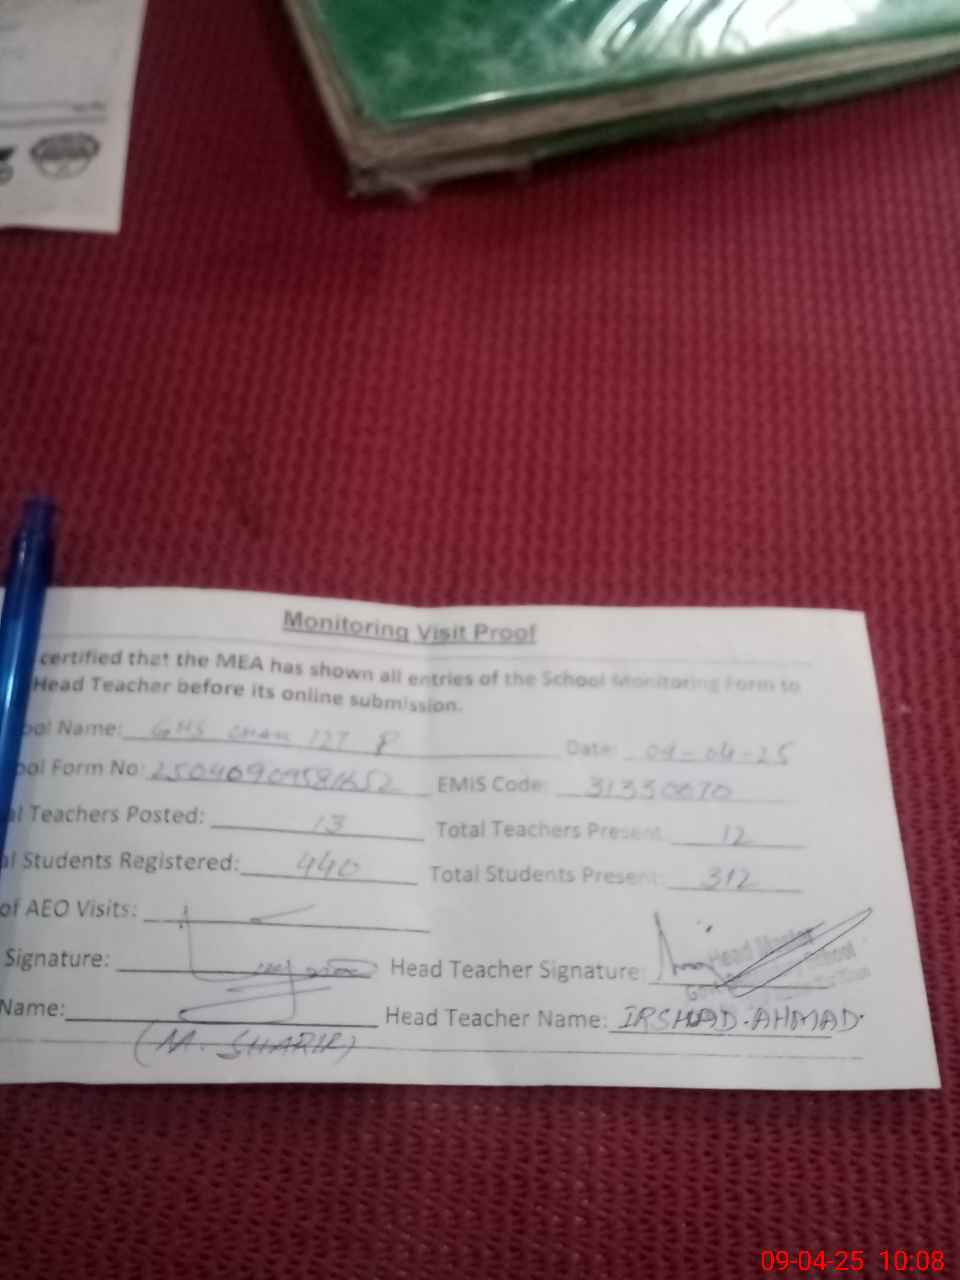 Monitoring Visit Proof
certified that the MEA has shown all entries of the School Monitoring Form to
Head Teacher before its online submission.
ool Name: GHS CHAK 127 P Date: 09-04-25
ool Form No: EMIS Code: 31330070
al Teachers Posted: 13 Total Teachers Present: 12
al Students Registered: 440 Total Students Present: 312
of AEO Visits:
Signature: Head Teacher Signature:
Head Master
School
Name: Head Teacher Name: IRSHAD AHMAD.
(M. SHARIF)
09-04-25 10:08